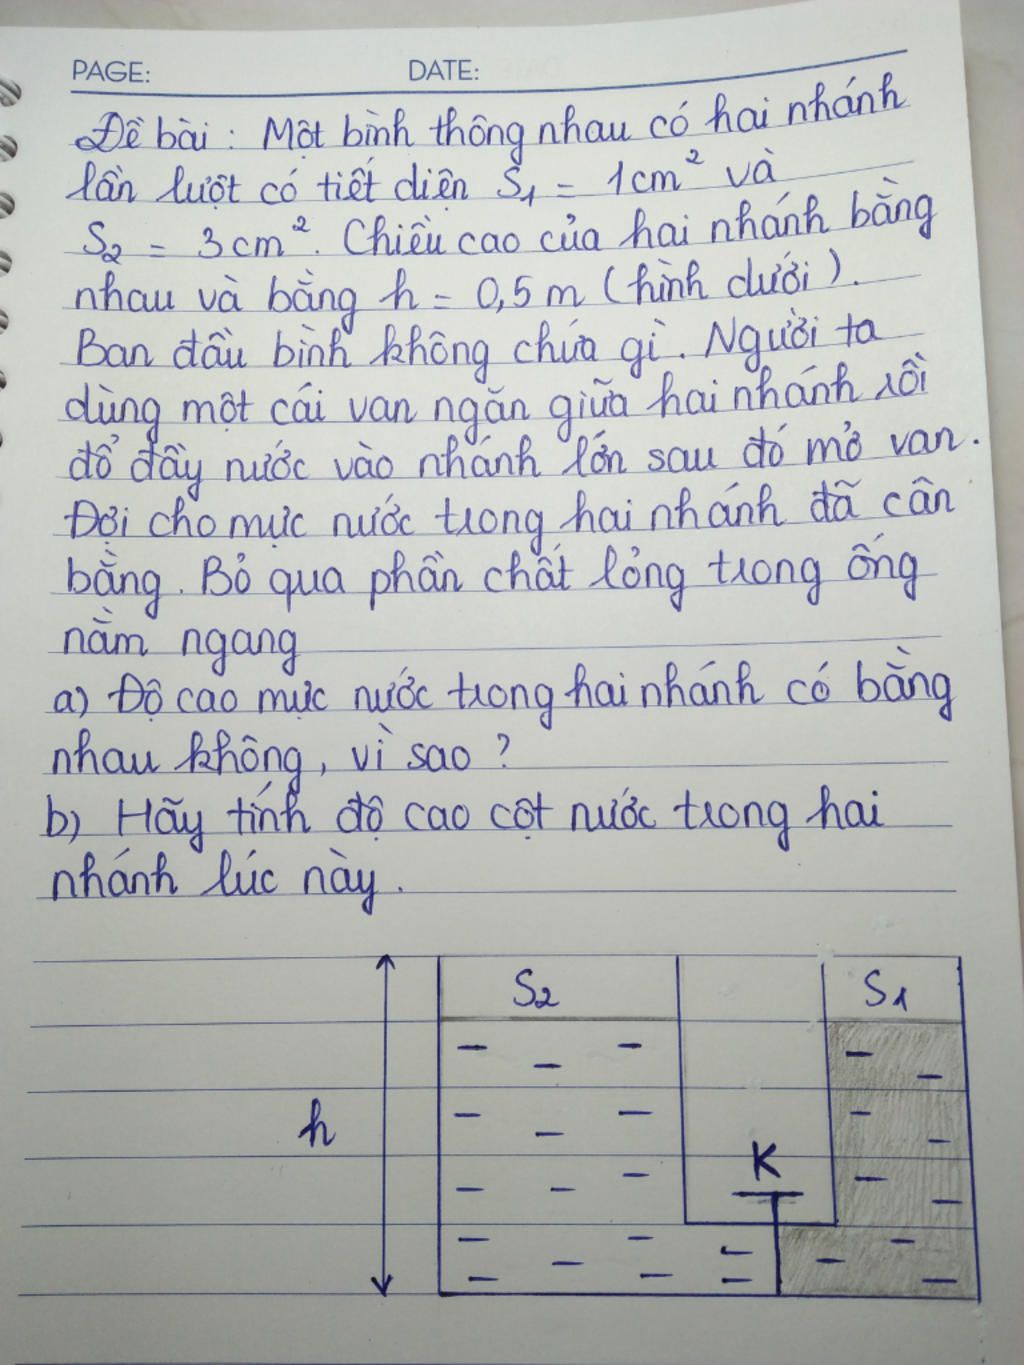 PAGE: DATE:
Đề bài : Một bình thông nhau có hai nhánh
lần lượt có tiết diện S₁ = 1cm² và
S₂ = 3cm². Chiều cao của hai nhánh bằng
nhau và bằng h = 0,5m (hình dưới).
Ban đầu bình không chứa gì. Người ta
dùng một cái van ngăn giữa hai nhánh rồi
đổ đầy nước vào nhánh lớn sau đó mở van.
Đợi cho mực nước trong hai nhánh đã cân
bằng. Bỏ qua phần chất lỏng trong ống
nằm ngang
a) Độ cao mực nước trong hai nhánh có bằng
nhau không, vì sao ?
b) Hãy tính độ cao cột nước trong hai
nhánh lúc này.
S₂ S₁
h
K